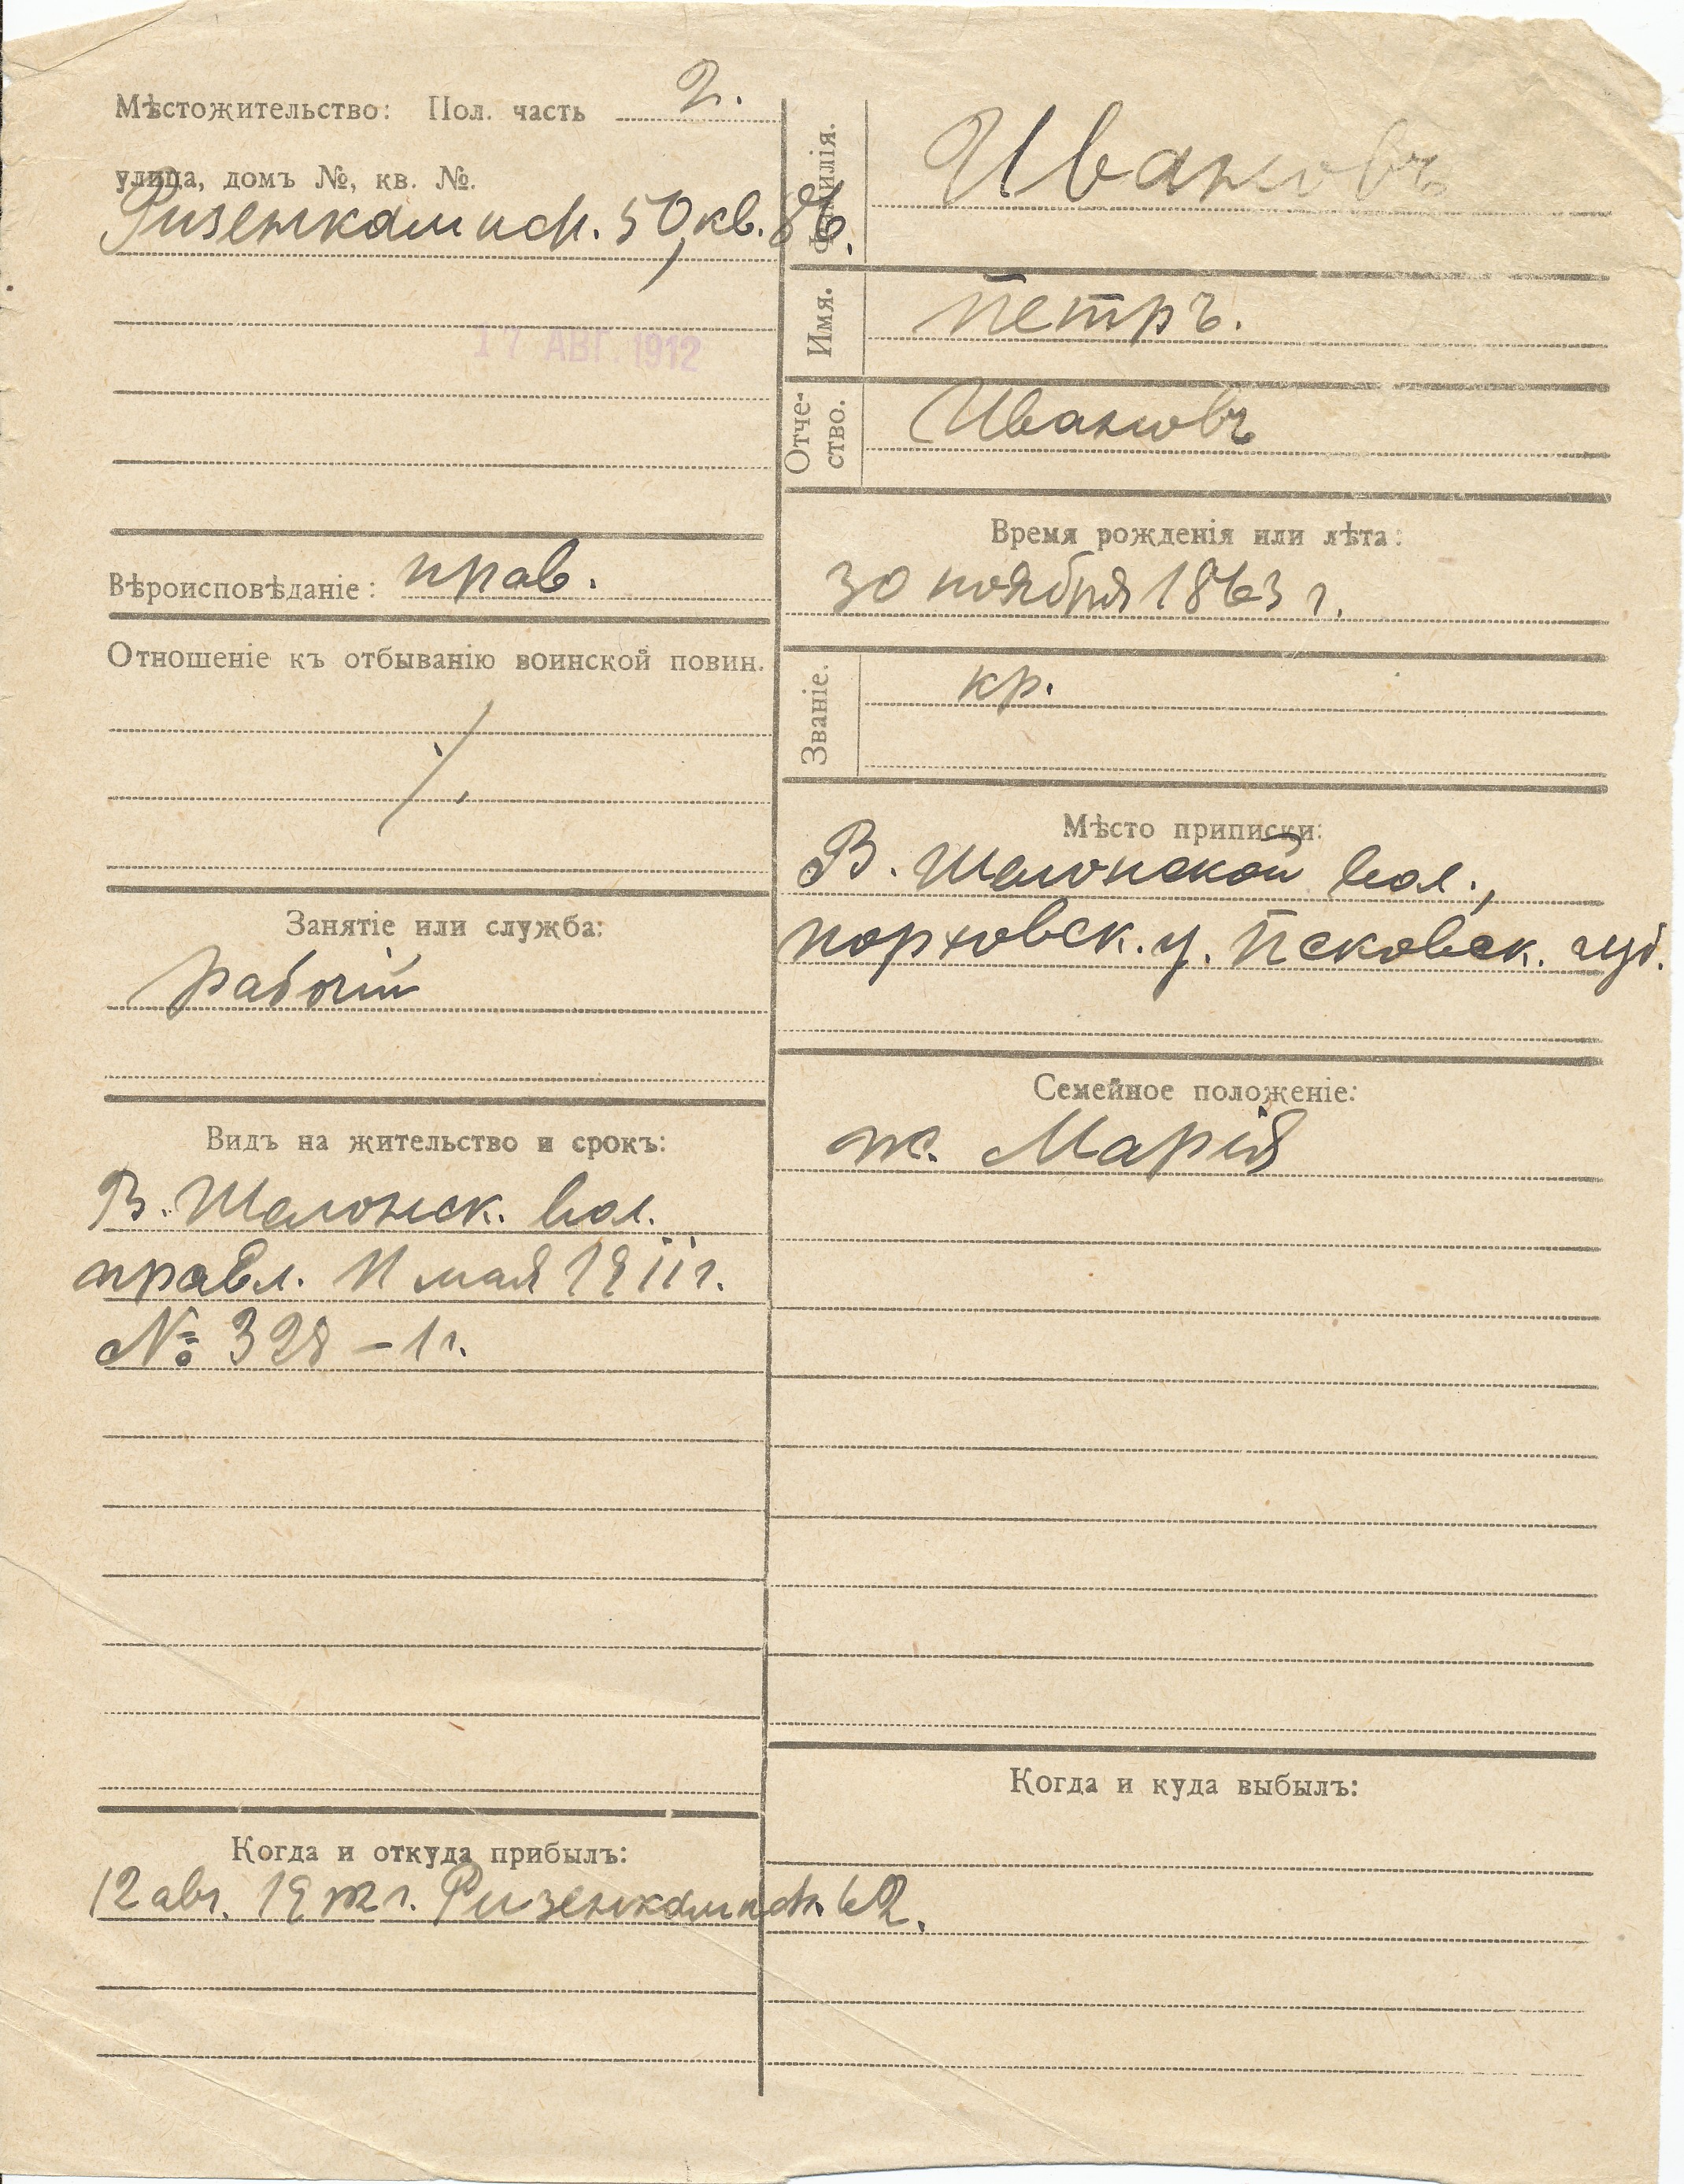 Мѣстожительство: Пол. часть 2.
улица, домъ №, кв. №.
Ризенкампф. 50, кв. 86.
17 АВГ. 1912
Вѣроисповѣданіе: прав.
Отношеніе къ отбыванію воинской повин.
Занятіе или служба:
рабочій
Видъ на жительство и срокъ:
В. Шелонск. вол.
правл. 11 мая 1911 г.
№ 328 – 1 г.
Когда и откуда прибылъ:
12 авг. 1912 г. Ризенкампф. 62.
Фамилія. Ивановъ
Имя. Петръ.
Отче-
ство. Ивановъ
Время рожденія или лѣта:
30 ноября 1863 г.
Званіе. кр.
Мѣсто приписки:
В. Шелонской вол.,
порховск. у. Псковск. губ.
Семейное положеніе:
ж. Марія
Когда и куда выбылъ: